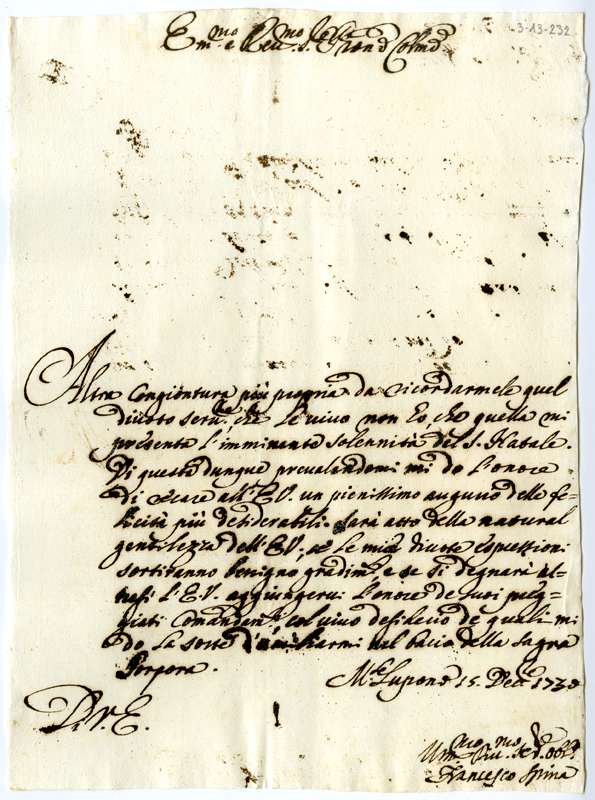 3-13-232
Em.mo e Reu.mo Sig.re Pron Colmo
Altra Congiontura più propria da ricordarmele quel
diuoto seru.re, che le viuo non ho, che quella mi
presenta l'imminente solennità del S. Natale.
Di questa dunque preualendomi mi do l'onore
di recare all'E.V. un pienissimo augurio delle fe=
licità più desiderabili. Sarà atto della natural
gentilezza dell'E.V. se le mie diuote espressioni
sortiranno benigno gradim.to e se si degnarà al=
tresi l'E.V. aggiungerui l'onore de suoi preg=
giati Comandam.ti col viuo desiderio de quali mi
do la sorte d'umiliarmi nel bacio della sagra
Porpora.
Lupone 15. Dec.re 173
D. V. E.
Um.mo Diu.mo Se.re obl.mo
Francesco Spina